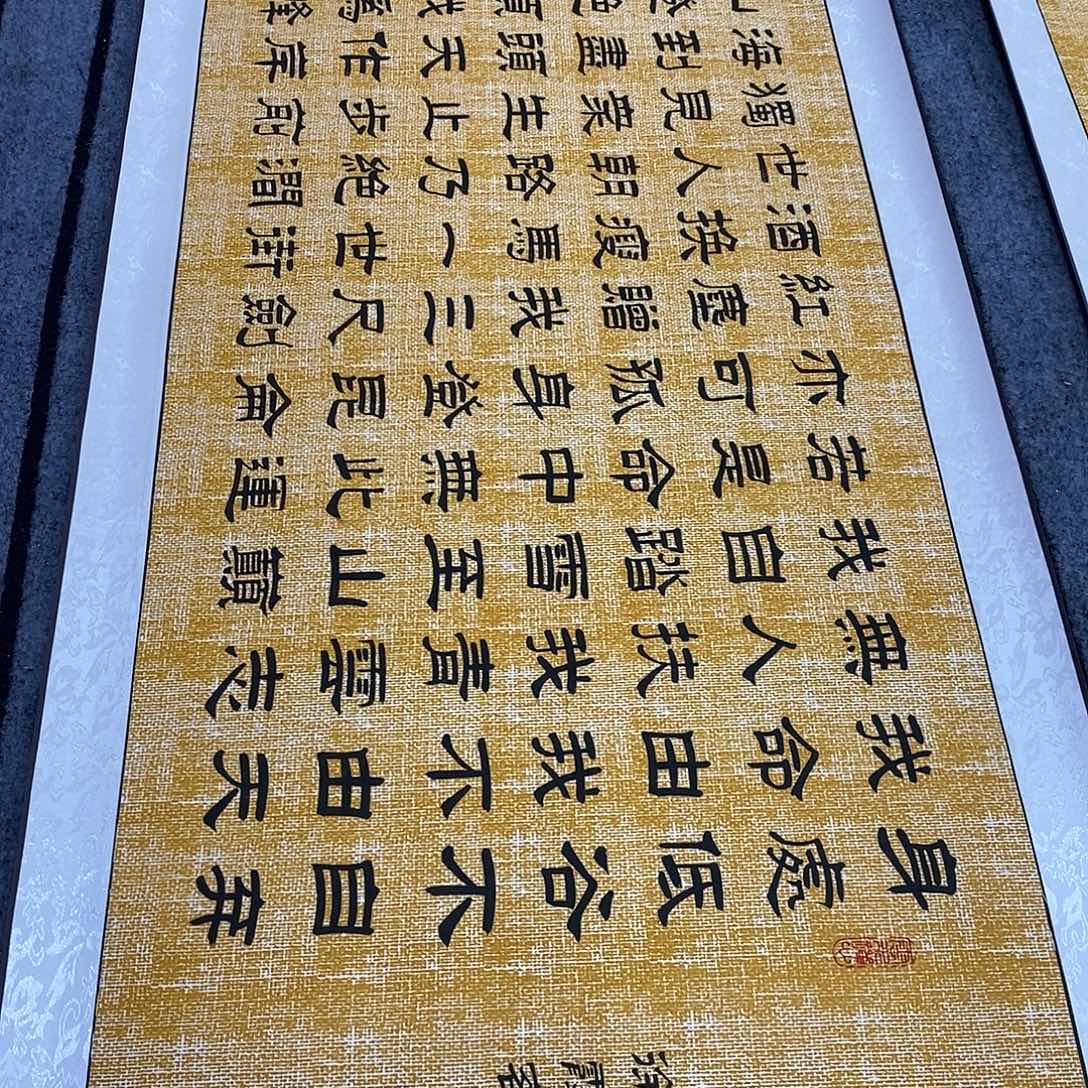 身處低谷不自弃
我命由我不由天
無人扶我青雲志
我自踏雪至山巔
若是命中無此運
亦可孤身登昆侖
紅塵贈我三尺劍
酒換瘦馬一世街
世人朝路乃絶澗
獨見衆生止步前
海到盡頭天作岸
山登絶頂我為峰